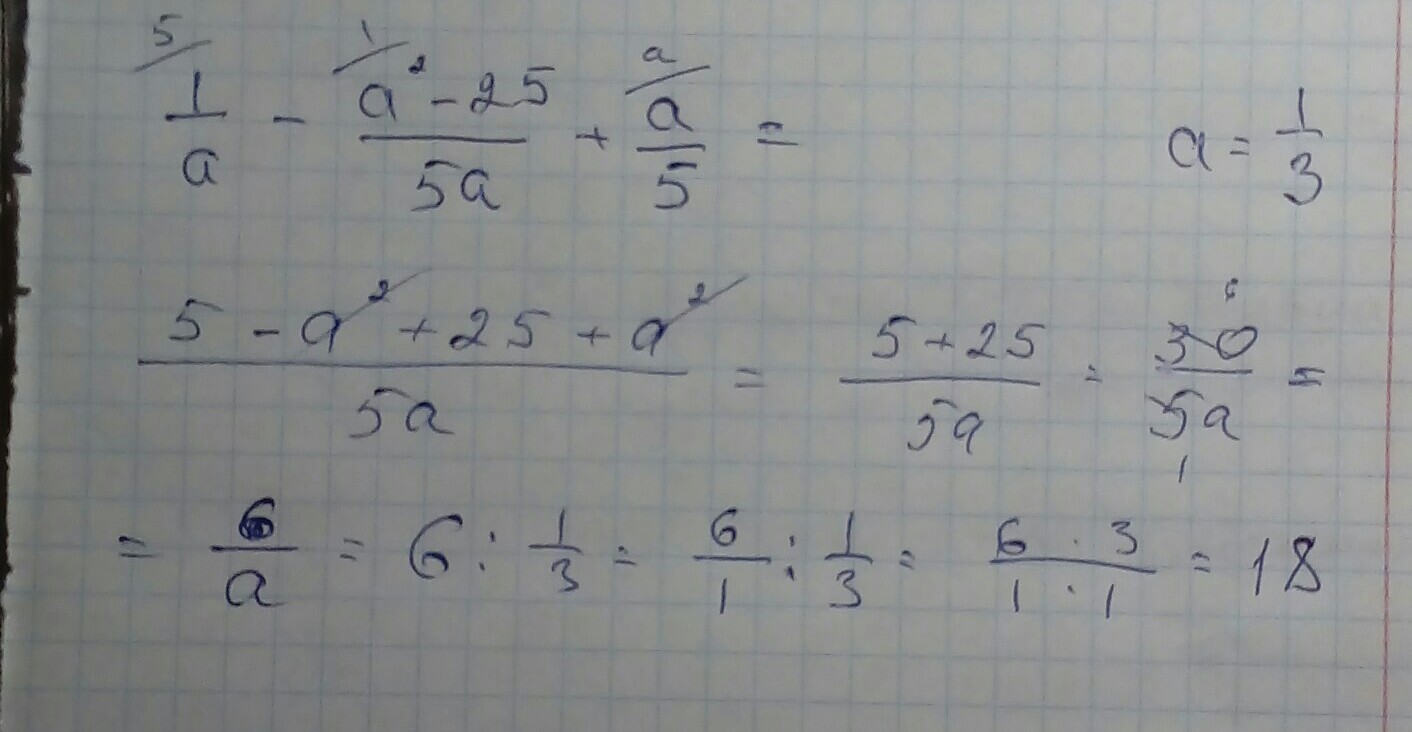 5/ 1/a - 1/ (a² - 25)/5a + a/ a/5 = a = 1/3
(5 - a² + 25 + a²)/5a = (5 + 25)/5a = 30/5a 6 1 =
= 6/a = 6 : 1/3 = 6/1 : 1/3 = (6 · 3)/(1 · 1) = 18